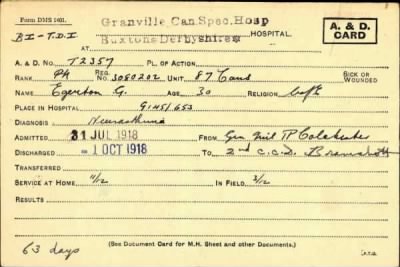 Form DMS 1401.
Granville Can. Spec. Hosp
BI-TDI
HOSPITAL.
A. & D. CARD
AT Buxton Derbyshire
A. & D. No. T2357 PL. OF ACTION
RANK Pte REG. No. 3050202 UNIT 87 Cans SICK OR WOUNDED
NAME Egerton G. AGE 30 RELIGION C of E
PLACE IN HOSPITAL G145/653
DIAGNOSIS Neurasthenia
ADMITTED 31 JUL 1918 FROM Gen Mil Colchester
DISCHARGED - 1 OCT 1918 TO 2nd C.C.D. Bramshott
TRANSFERRED
SERVICE AT HOME 11/12 IN FIELD 3/12
RESULTS
63 days
(See Document Card for M.H. Sheet and other Documents.)